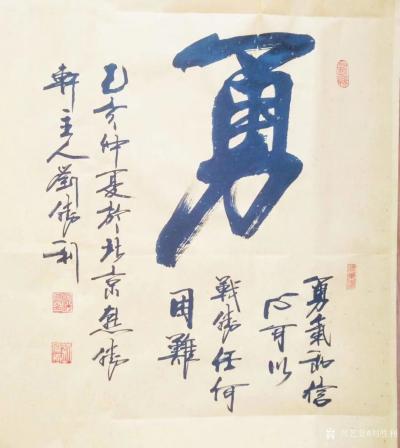 勇
勇氣和信
心可以
戰勝任何
困難
乙亥仲夏於北京惠勝
軒主人劉勝利